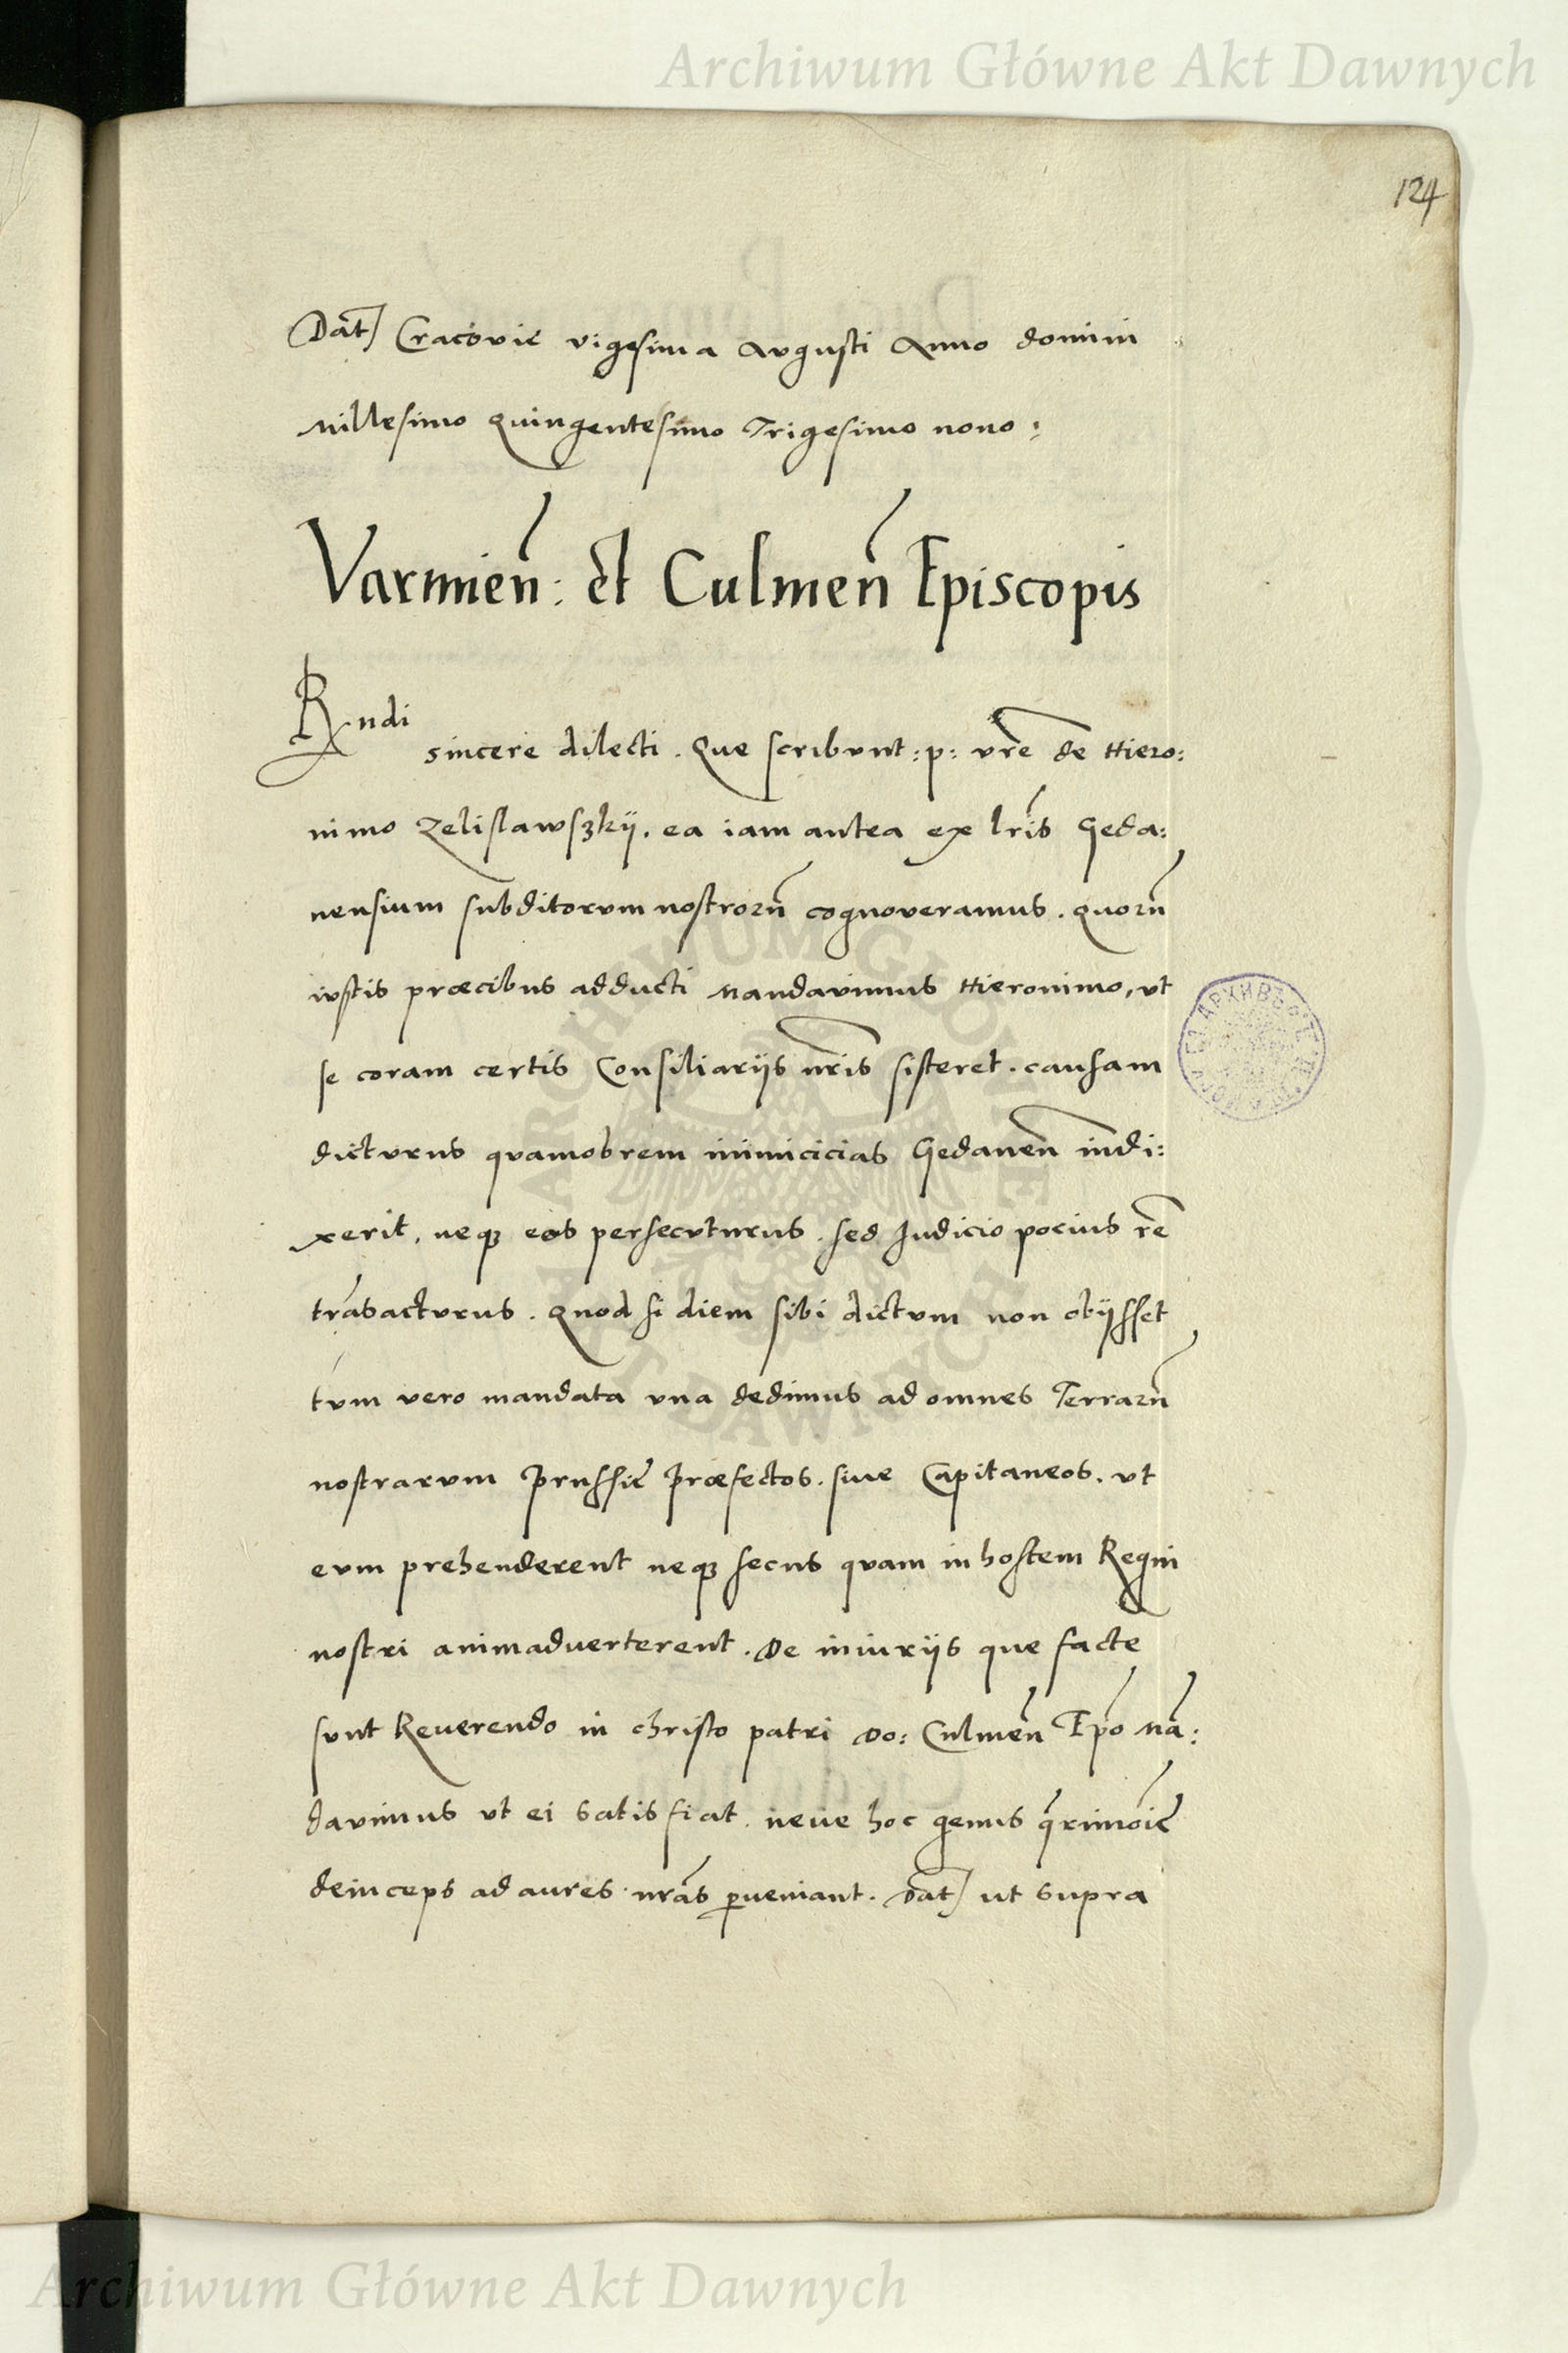 Archiwum Główne Akt Dawnych
124
Dat Cracovie vigesima Avgusti Anno domini
Millesimo Quingentesimo Trigesimo nono :
Varmien̄ : et Culmen̄ Episcopis
Rndi
sincere dilecti . Que scribvnt : p : vr̄e de Hiero:
nimo Zelislawsȝkÿ . ea iam antea ex lr̄is Geda:
nensium subditorvm nostrorū cognoveramus . Quorū
ivstis præcibus adducti Mandavimus Hieronimo, vt
se coram certis Consiliarijs nr̄is sisteret . causam
dictvrus qvamobrem inimicicias Gedanen̄ indi:
xerit, neqȝ eos persecvturus . sed Judicio pocius rē
trāsactvrus . Quod si diem sibi dictvm non obijsset
tvm vero mandata vna dedimus ad omnes Terrarū
nostrarvm Prussie Præfectos . sive Capitaneos . vt
evm prehenderent neqȝ secus qvam in hostem Regni
nostri animadverterent . De iniurijs que facte
svnt Reverendo in christo patri Do: Culmen̄ Ep̄o Mā:
davimus vt ei satisfiat . neve hoc genus q̄rimōie
deinceps ad avres nr̄as ꝑveniant . Dat ut supra
ARCHIWUM GŁÓWNE
AKT DAWNYCH
Archiwum Główne Akt Dawnych